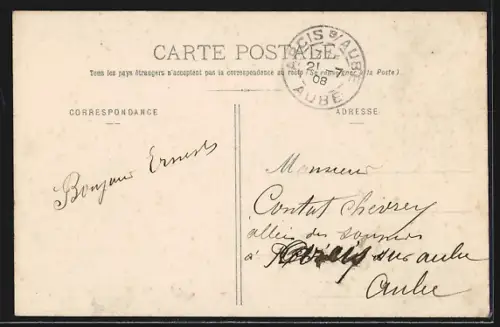 CARTE POSTALE
Tous les pays étrangers n'acceptent pas la correspondance au recto (Se renseigner à la Poste)
ARCIS S/AUBE
21 - 7
08
AUBE
CORRESPONDANCE
ADRESSE
Bonjour Ernest
Monsieur
Contat Chevrey
allée des
à Arcis sur aube
Aube